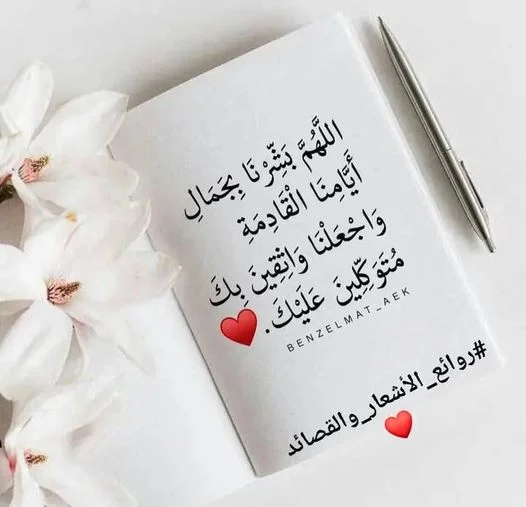 اللَّهُمَّ بَشِّرْنَا بِجَمَالِ
أَيَّامِنَا الْقَادِمَةِ
وَاجْعَلْنَا وَاثِقِينَ بِكَ
مُتَوَكِّلِينَ عَلَيْكَ.❤️
BENZELMAT_AEK
#روائع_الأشعار_والقصائد
❤️